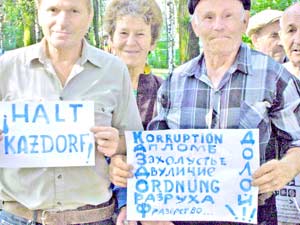 ¡HALT
KAZDORF!
KORRUPTION
АПЛОМБ
ЗАХОЛУСТЬЕ
ДВУЛИЧИЕ
ORDNUNG
РАЗРУХА
ФАЗЕРСТВО...
ДОЛОЙ!!